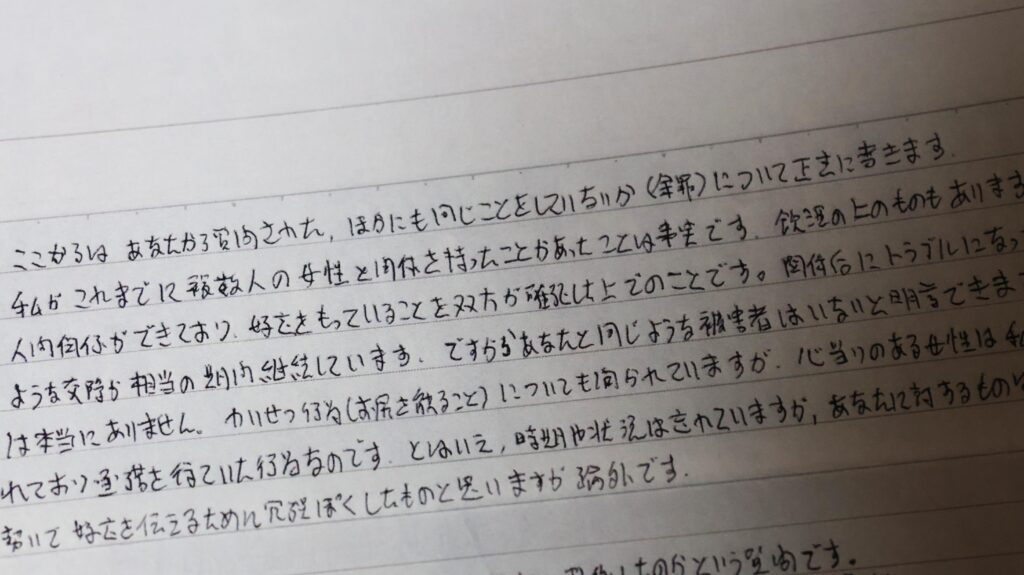 ここからは あなたから質問された、ほかにも同じことをしていないか(余罪)について正直に書きます.
私がこれまでに複数人の女性と関係を持ったことがあったことは事実です. 飲酒の上のものもありま
人間関係ができており、好意をもっていることを双方が確認した上でのことです。関係後にトラブルになっ
ような交際が相当の期間継続しています. ですからあなたと同じような被害者はいないと明言できま
は本当にありません。わいせつ行為(お尻を触ること)についても問われていますが、心当りのある女性は私
れており 環境を 行為なのです. とはいえ、時期や状況は忘れていますが, あなたに対するもの
いて 好意を伝えるために冗談ぽくしたものと思いますが 論外です.
のかという質問です。